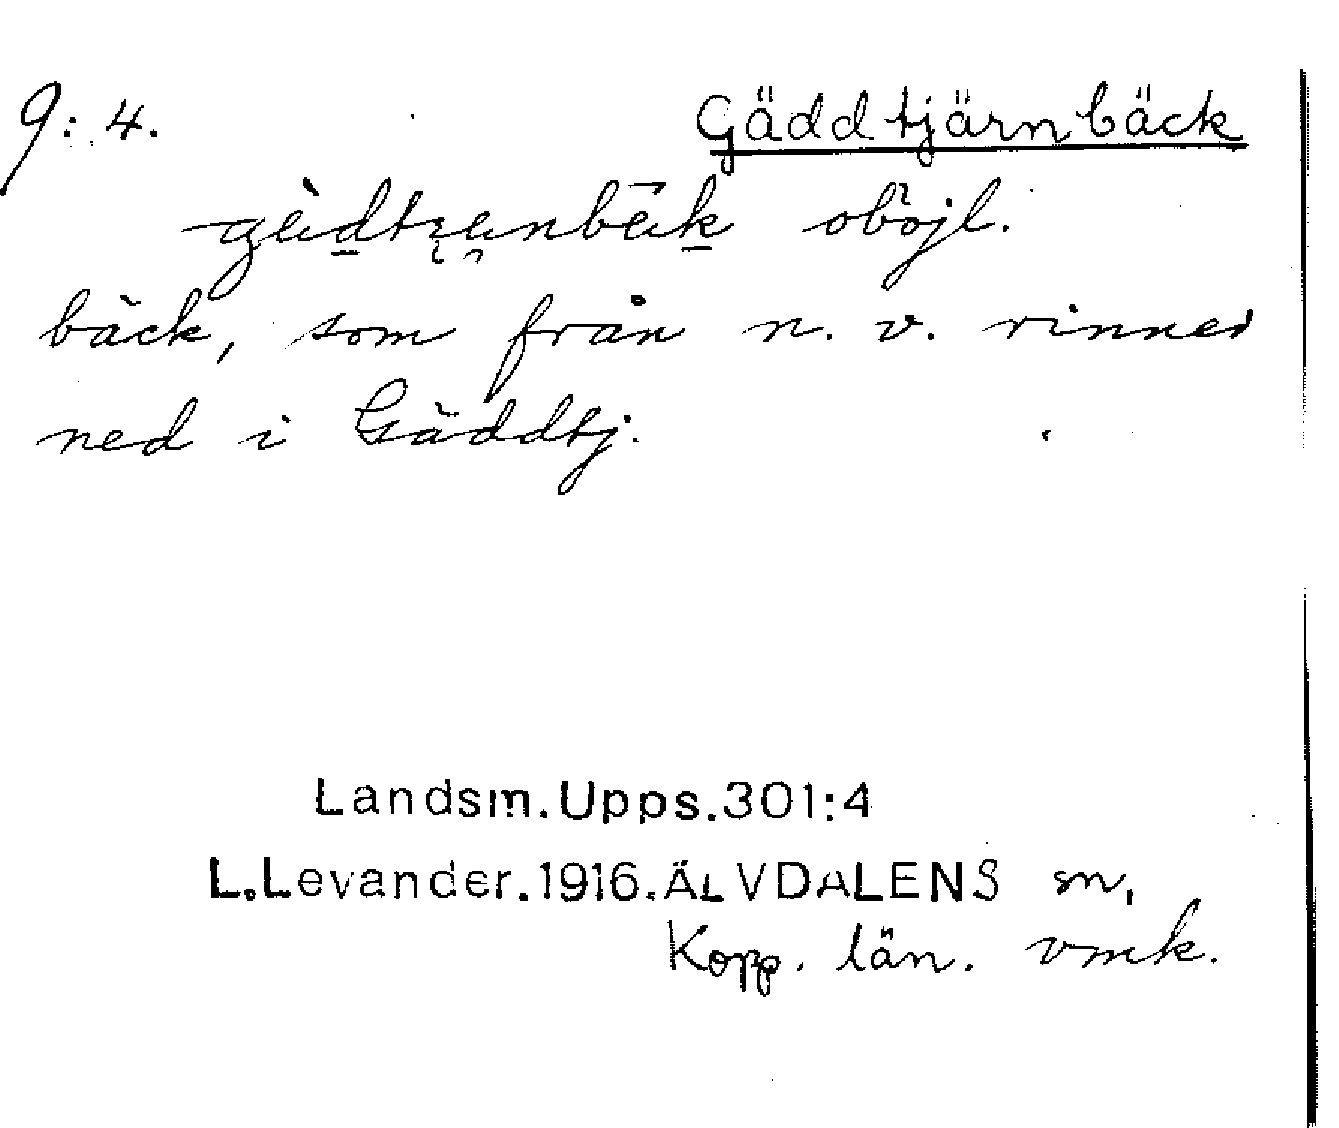 9:4. Gäddtjärnbäck
oböjl.
bäck, som från n. v. rinner
ned i Gäddtj.
Landsm.Upps.301:4
L.Levander.1916.ÄLVDALENS sn,
Kopp. län. vmk.